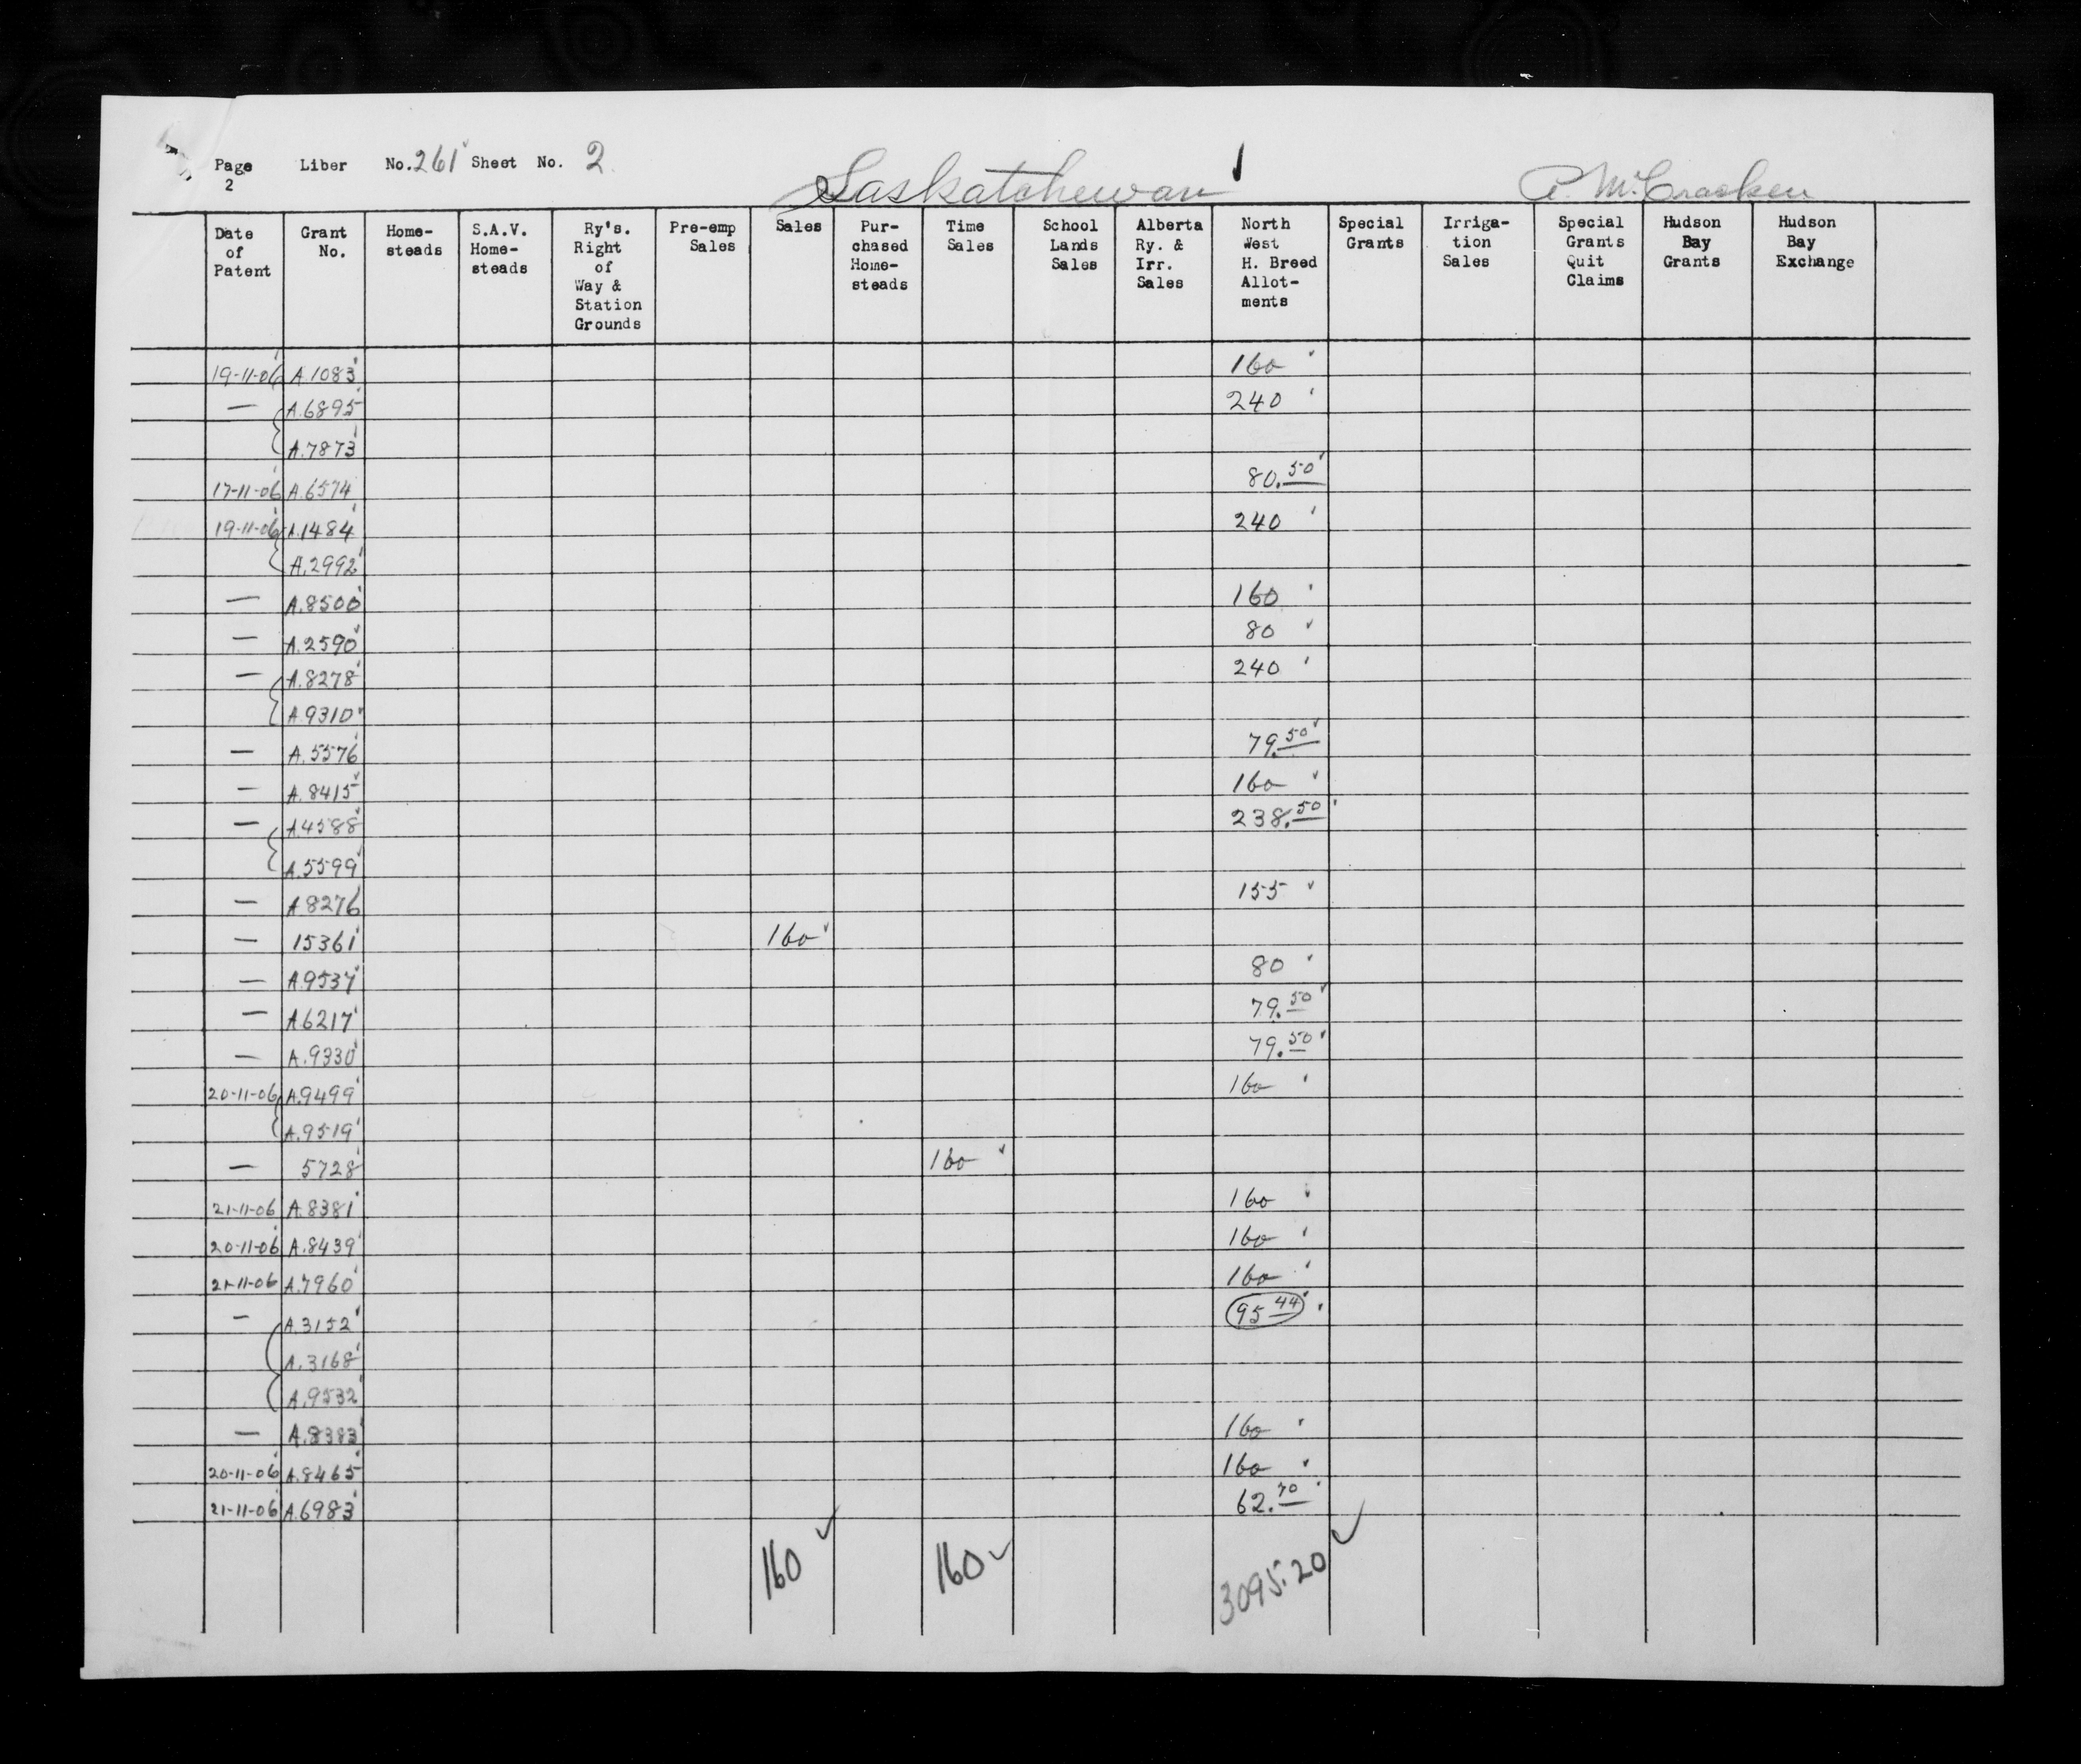 Page Liber No. 261 Sheet No. 2
2
Saskatchewan
P. McCracken
Date of Patent | Grant No. | Home-steads | S.A.V. Home-steads | Ry's. Right of Way & Station Grounds | Pre-emp Sales | Sales | Pur-chased Home-steads | Time Sales | School Lands Sales | Alberta Ry. & Irr. Sales | North West H. Breed Allot-ments | Special Grants | Irriga-tion Sales | Special Grants Quit Claims | Hudson Bay Grants | Hudson Bay Exchange
19-11-06 A.1083 160
— A.6895 240
A.7873
17-11-06 A.6574 80.50
19-11-06 A.1484 240
A.2992
— A.8500 160
— A.2590 80
— A.8278 240
A.9310
— A.5576 79.50
— A.8415 160
— A.4588 238.50
A.5599
— A.8276 155
— 15361 160
— A.9537 80
— A.6217 79.50
— A.9330 79.50
20-11-06 A.9499 160
A.9519
— 5728 160
21-11-06 A.8381 160
20-11-06 A.8439 160
21-11-06 A.7960 160
— A.3152 95 44
A.3168
A.9532
— A.8383 160
20-11-06 A.8465 160
21-11-06 A.6983 62.70
160 160 3095.20